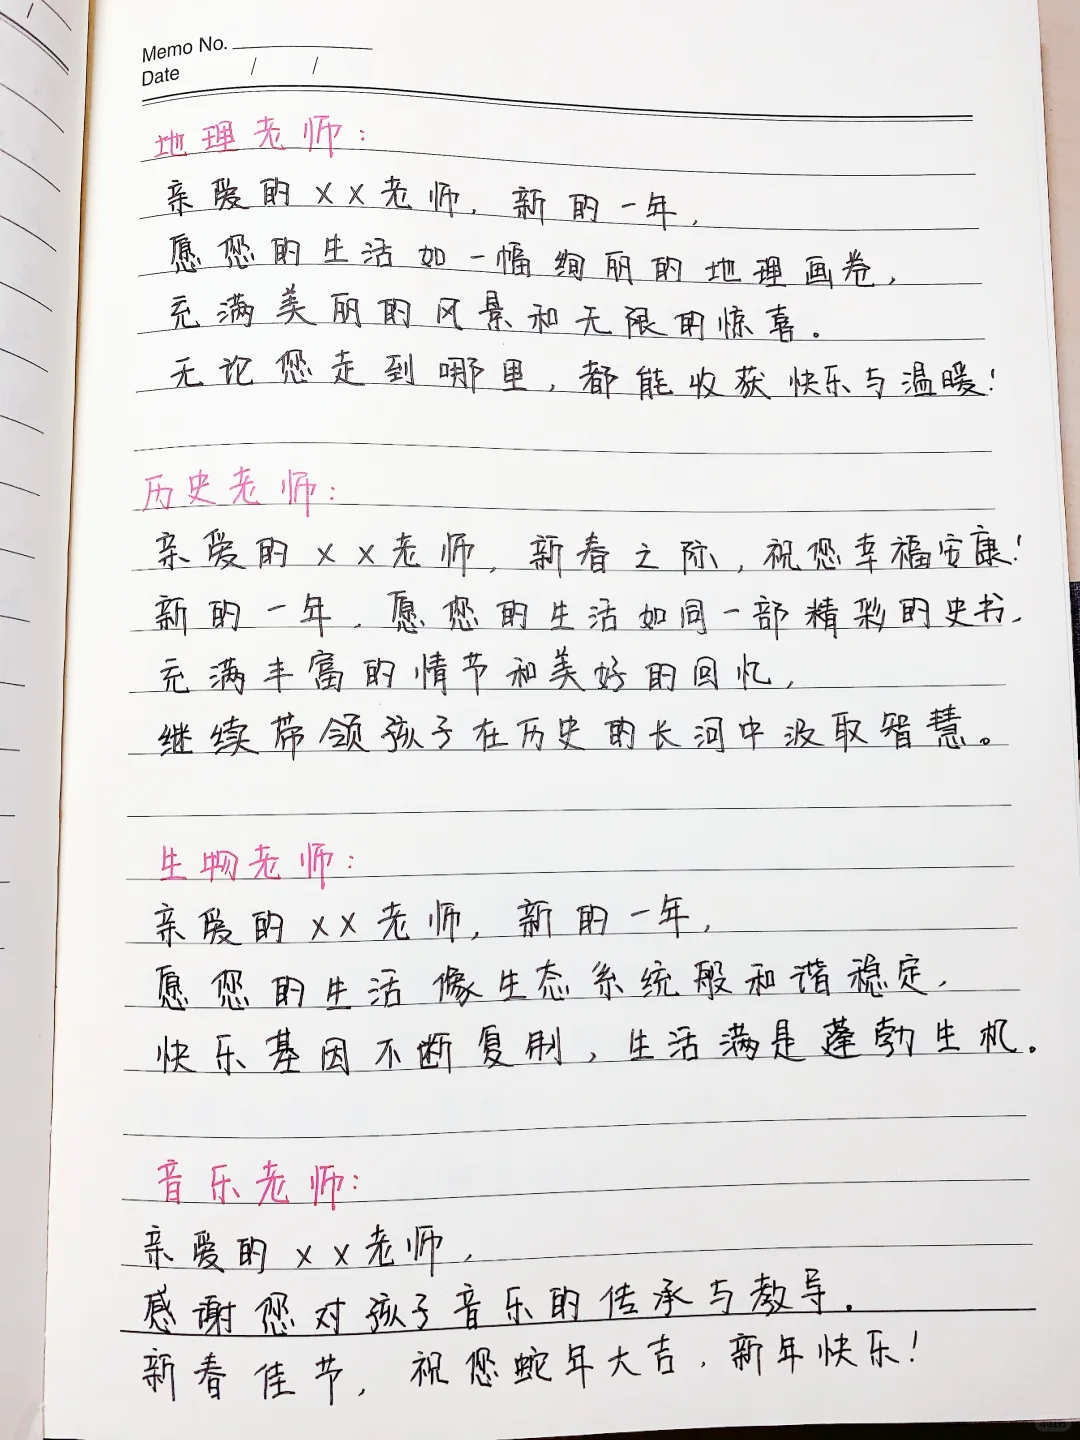 Memo No.
Date / /
地理老师:
亲爱的××老师,新的一年,
愿您的生活如一幅绚丽的地理画卷,
充满美丽的风景和无限的惊喜。
无论您走到哪里,都能收获快乐与温暖!
历史老师:
亲爱的××老师,新春之际,祝您幸福安康!
新的一年,愿您的生活如同一部精彩的史书,
充满丰富的情节和美好的回忆,
继续带领孩子在历史的长河中汲取智慧。
生物老师:
亲爱的××老师,新的一年,
愿您的生活像生态系统般和谐稳定,
快乐基因不断复制,生活满是蓬勃生机。
音乐老师:
亲爱的××老师,
感谢您对孩子音乐的传承与教导.
新春佳节,祝您蛇年大吉,新年快乐!